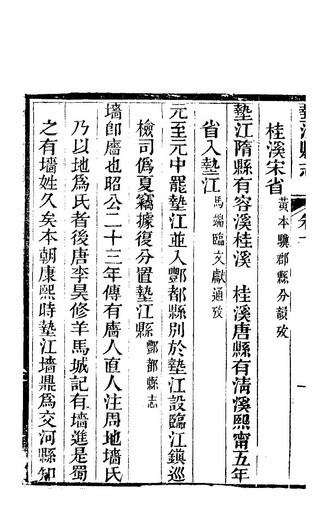 墊江縣志 卷一
桂溪宋省黃本驥郡縣分韻攷
墊江隋縣有容溪桂溪 桂溪唐縣有清溪熙甯五年
省入墊江馬端臨文獻通攷
元至元中罷墊江並入酆都縣別於墊江設臨江鎮巡
檢司僞夏竊據復分置墊江縣酆都縣志
墻卽廧也昭公二十三年傳有廧人直人注周地墻氏
乃以地爲氏者後唐李昊修羊馬城記有墻進是蜀
之有墻姓久矣本朝康熙時墊江墻鼎爲交河縣知
一